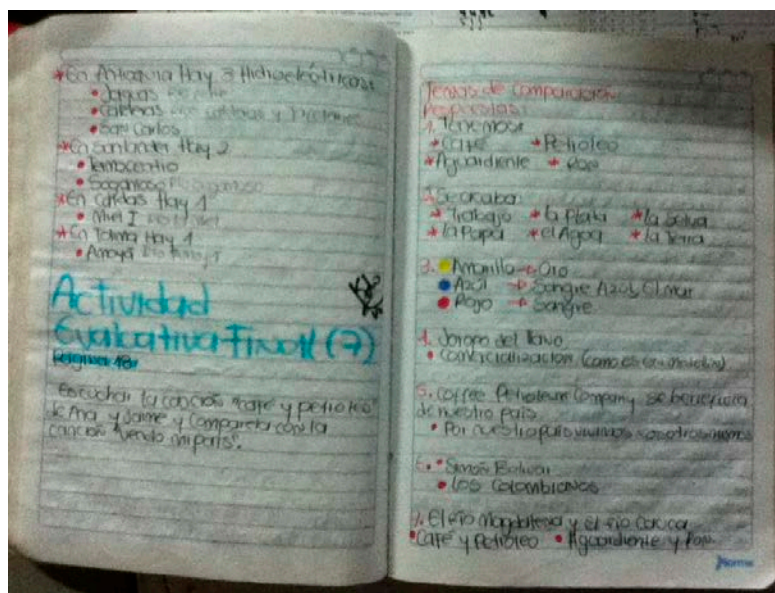 *En Antioquia Hay 3 Hidroeléctricas:
• Jaguas
• Calderas
• San Carlos
*En Santander Hay 2
• Tambocentio
• Sogamoso
*En Caldas Hay 1
• Miel I
*En Tolima Hay 1
• Amoyá
Actividad
Evaluativa Final (7)
Página 18
Escuchar la canción "café y petróleo"
de Ana y Jaime y Compararla con la
canción "vendo mi país".
Temas de comparación
Respuestas:
1. Tenemos:
*Café *Petroleo
*Aguardiente *Ron
Se acaba:
*Trabajo *la Plata *la Selva
*la Papa *el Agua *la Tierra
3. • Amarillo → Oro
• Azul → Sangre Azul, El mar
• Rojo → Sangre
4. Joropo del llavo
• Comercialización
5. Coffee Petroleum Company se beneficia
de nuestro país.
• Por nuestro país vivimos nosotros mismos
6. • Simón Bolivar
• Los Colombianos
7. El río Magdalena y el río Cauca
• Café y Petróleo • Aguardiente y Ron
Norma